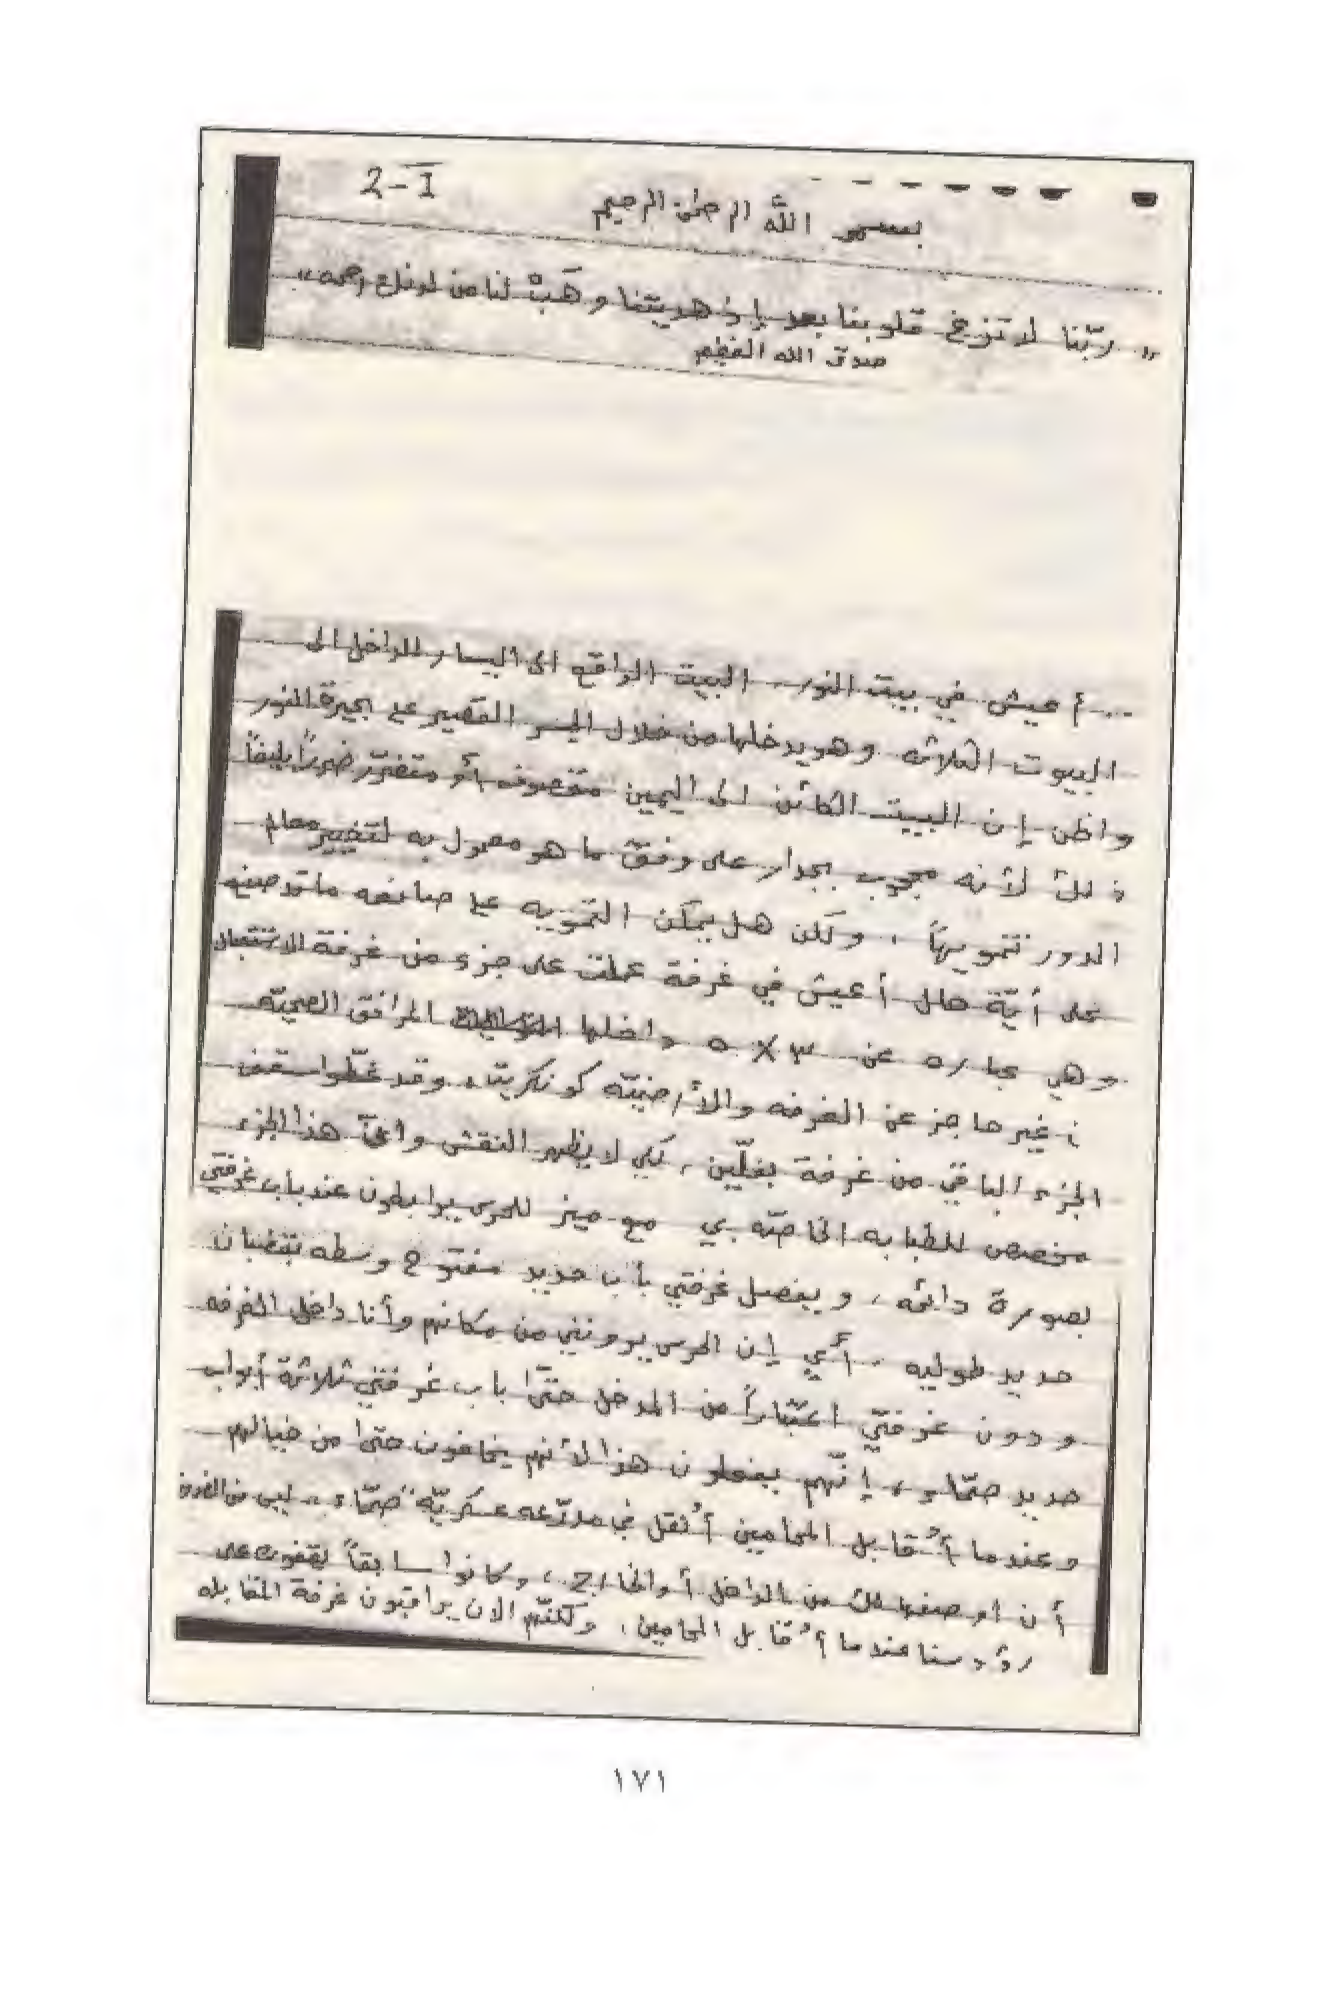 2-I
بسم الله الرحمن الرحيم
" ربّنا لا تزغ قلوبنا بعد إذ هديتنا وهَبْ لنا من لدنك رحمه "
صدق الله العظيم
... أعيش في بيت النور.. البيت الواقع الى اليسار للداخل الى
البيوت الثلاثه وهو يدخلها من خلال الجسر القصير على بحيرة النور
واظن إن البيت الكائن الى اليمين مقصوف أو متضرّر ضرراً بليغاً
ذلك لأنه محجوب بجدار على وفق ما هو معمول به لتغيير معالم
الدور تمويهاً ، ولكن هل يمكن التمويه على صانعه ما قد صنع
على أيّة حال أعيش في غرفة عملت على جزء من غرفة الاستقبال
وهي عباره عن ٣ X ٥ داخلها المرافق الصحيّه
غير حاجز عن الغرفه والأرضيّه كونكريتيّه وقد غطّوا سقف
الجزء الباقي من غرفة بفلّين ، لكي لا يظهر النقش وأنّ هذا الجزء
مخصص للطبابه الخاصّه بي مع ميز للحرس يرابطون عند باب غرفتي
بصورة دائمه ، ويفصل غرفتي باب حديد مفتوح وسطه بقضبان
حديد طوليه ، أي إن الحرس يرونني من مكانهم وأنا داخل الغرفه
ودون غرفتي اعتباراً من المدخل حتّا باب غرفتي ثلاثة أبواب
حديد صمّاء ، إنّهم يفعلون هذا لأنهم يخافون حتّا من خيالهم
وعندما أُقابل المحامين أُنقل في مدرّعه عسكريّة "صمّاء" ليس من الضروري
أن اصفها لك من الداخل أو الخارج ، وكانوا سابقاً يقفون على
رؤوسنا عندما أُقابل المحامين ، ولكنّهم الان يراقبون غرفة المقابله
١٧١